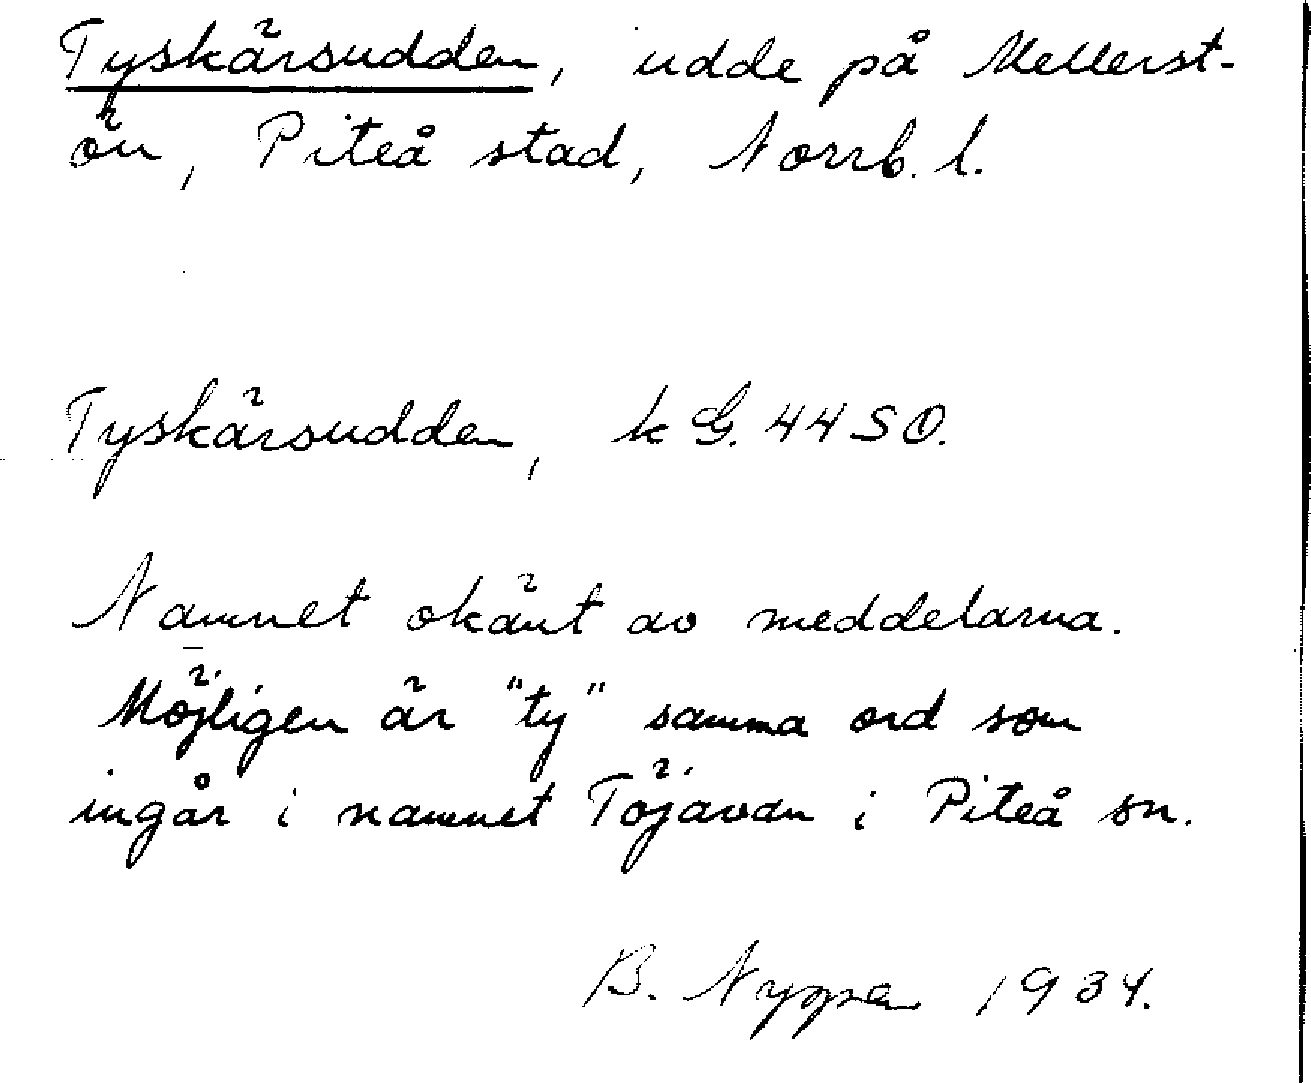 Tyskärsudden, udde på Mellerst-
ön, Piteå stad, Norrb. l.
Tyskärsudden, k G. 44 S O.
Namnet okänt av meddelarna.
Möjligen är "ty" samma ord som
ingår i namnet Töjavan i Piteå sn.
B. Nyppen 1934.